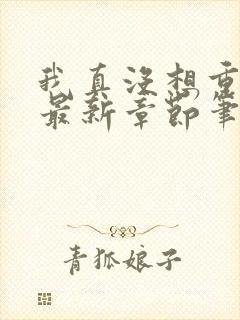 我真没想重
最新章节笔
青狐娘子